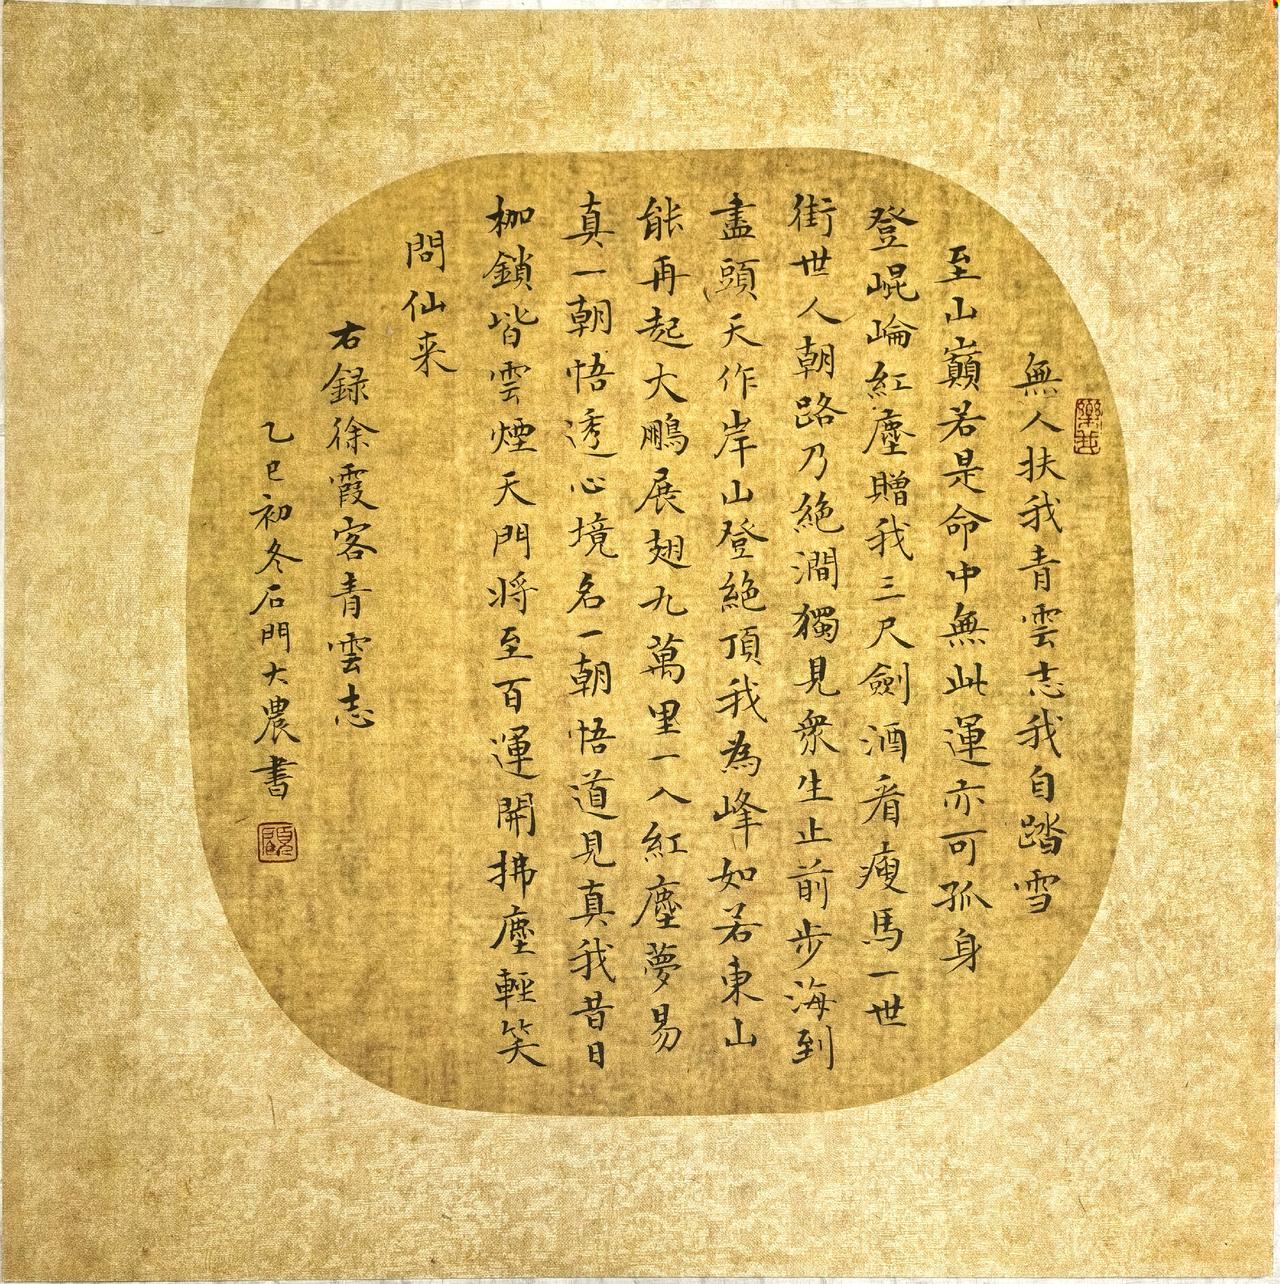 無人扶我青雲志我自踏雪
至山巔若是命中無此運亦可孤身
登崐崘紅塵贈我三尺劍酒看瘦馬一世
街世人朝路乃絶澗獨見衆生止前步海到
盡頭天作岸山登絶頂我為峰如若東山
能再起大鵬展翅九萬里一入紅塵夢易
真一朝悟透心境名一朝悟道見真我昔日
枷鎖皆雲煙天門將至百運開拂塵輕笑
問仙来
右録徐霞客青雲志
乙巳初冬石門大農書